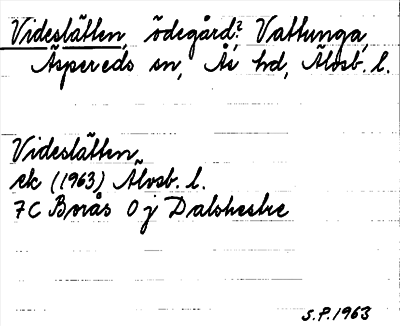 Videslätten, ödegård?, Vattunga,
Äspereds sn, Ås hd, Älvsb. l.
Videslätten
ek (1963) Älvsb. l.
7C Borås 0j Dalshestre
S.P. 1963